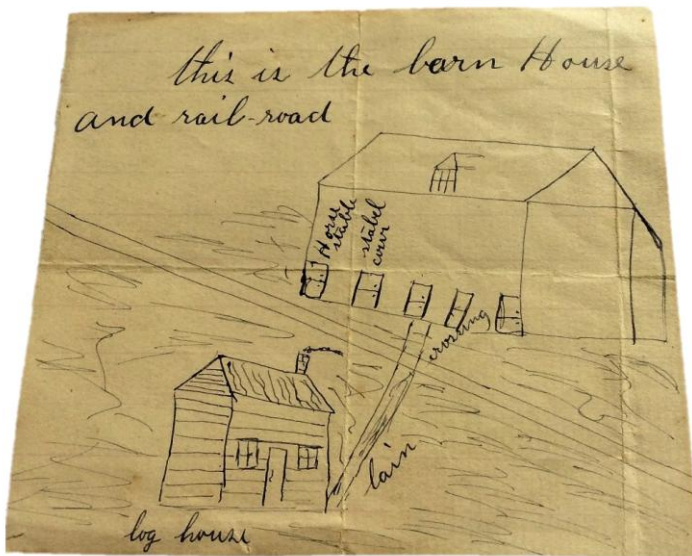 this is the barn House
and rail-road
Horse
stable
stabel
cow
crossing
lain
log house